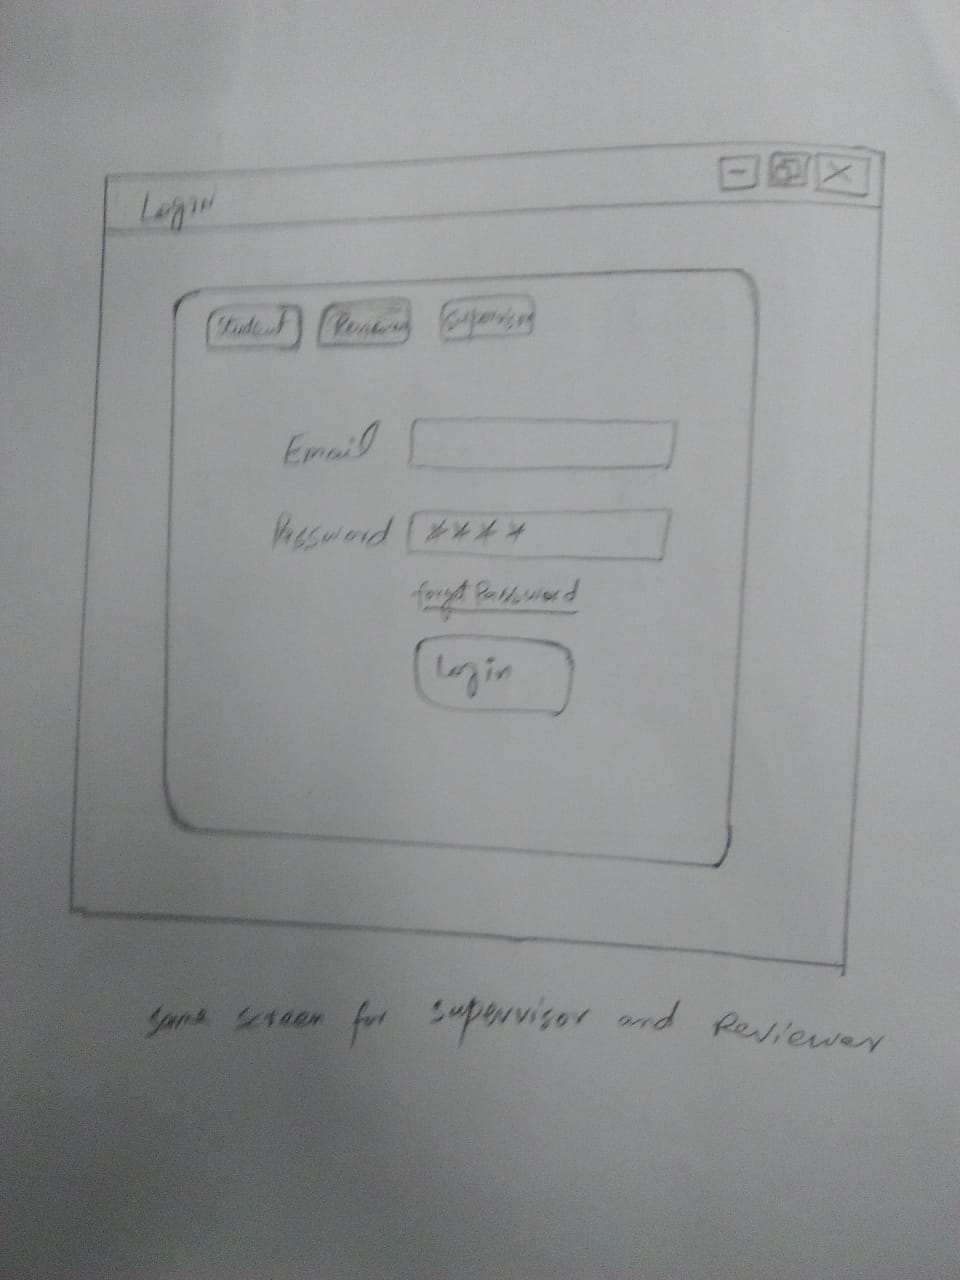 Login
Student Reviewer Supervisor
Email
Password ****
forgot Password
Login
Same screen for supervisor and Reviewer